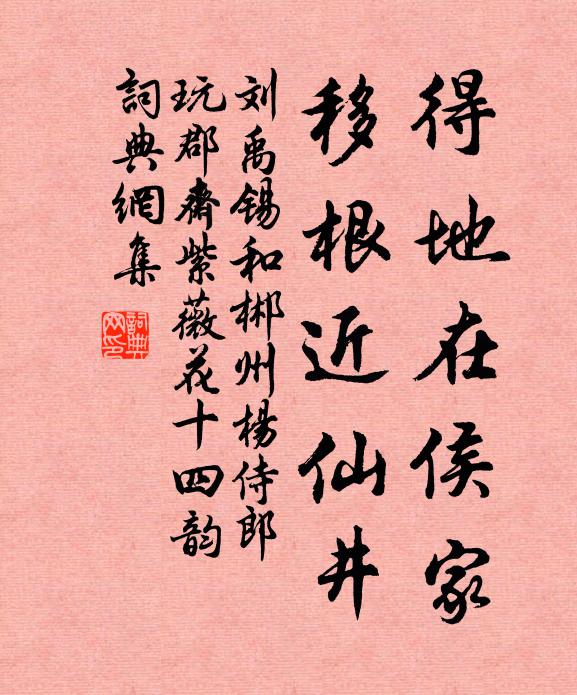 得地在侯家
移根近仙井
刘禹锡和郴州楊侍郎
玩郡齋紫薇花十四韵
詞典網集
詞典
网印